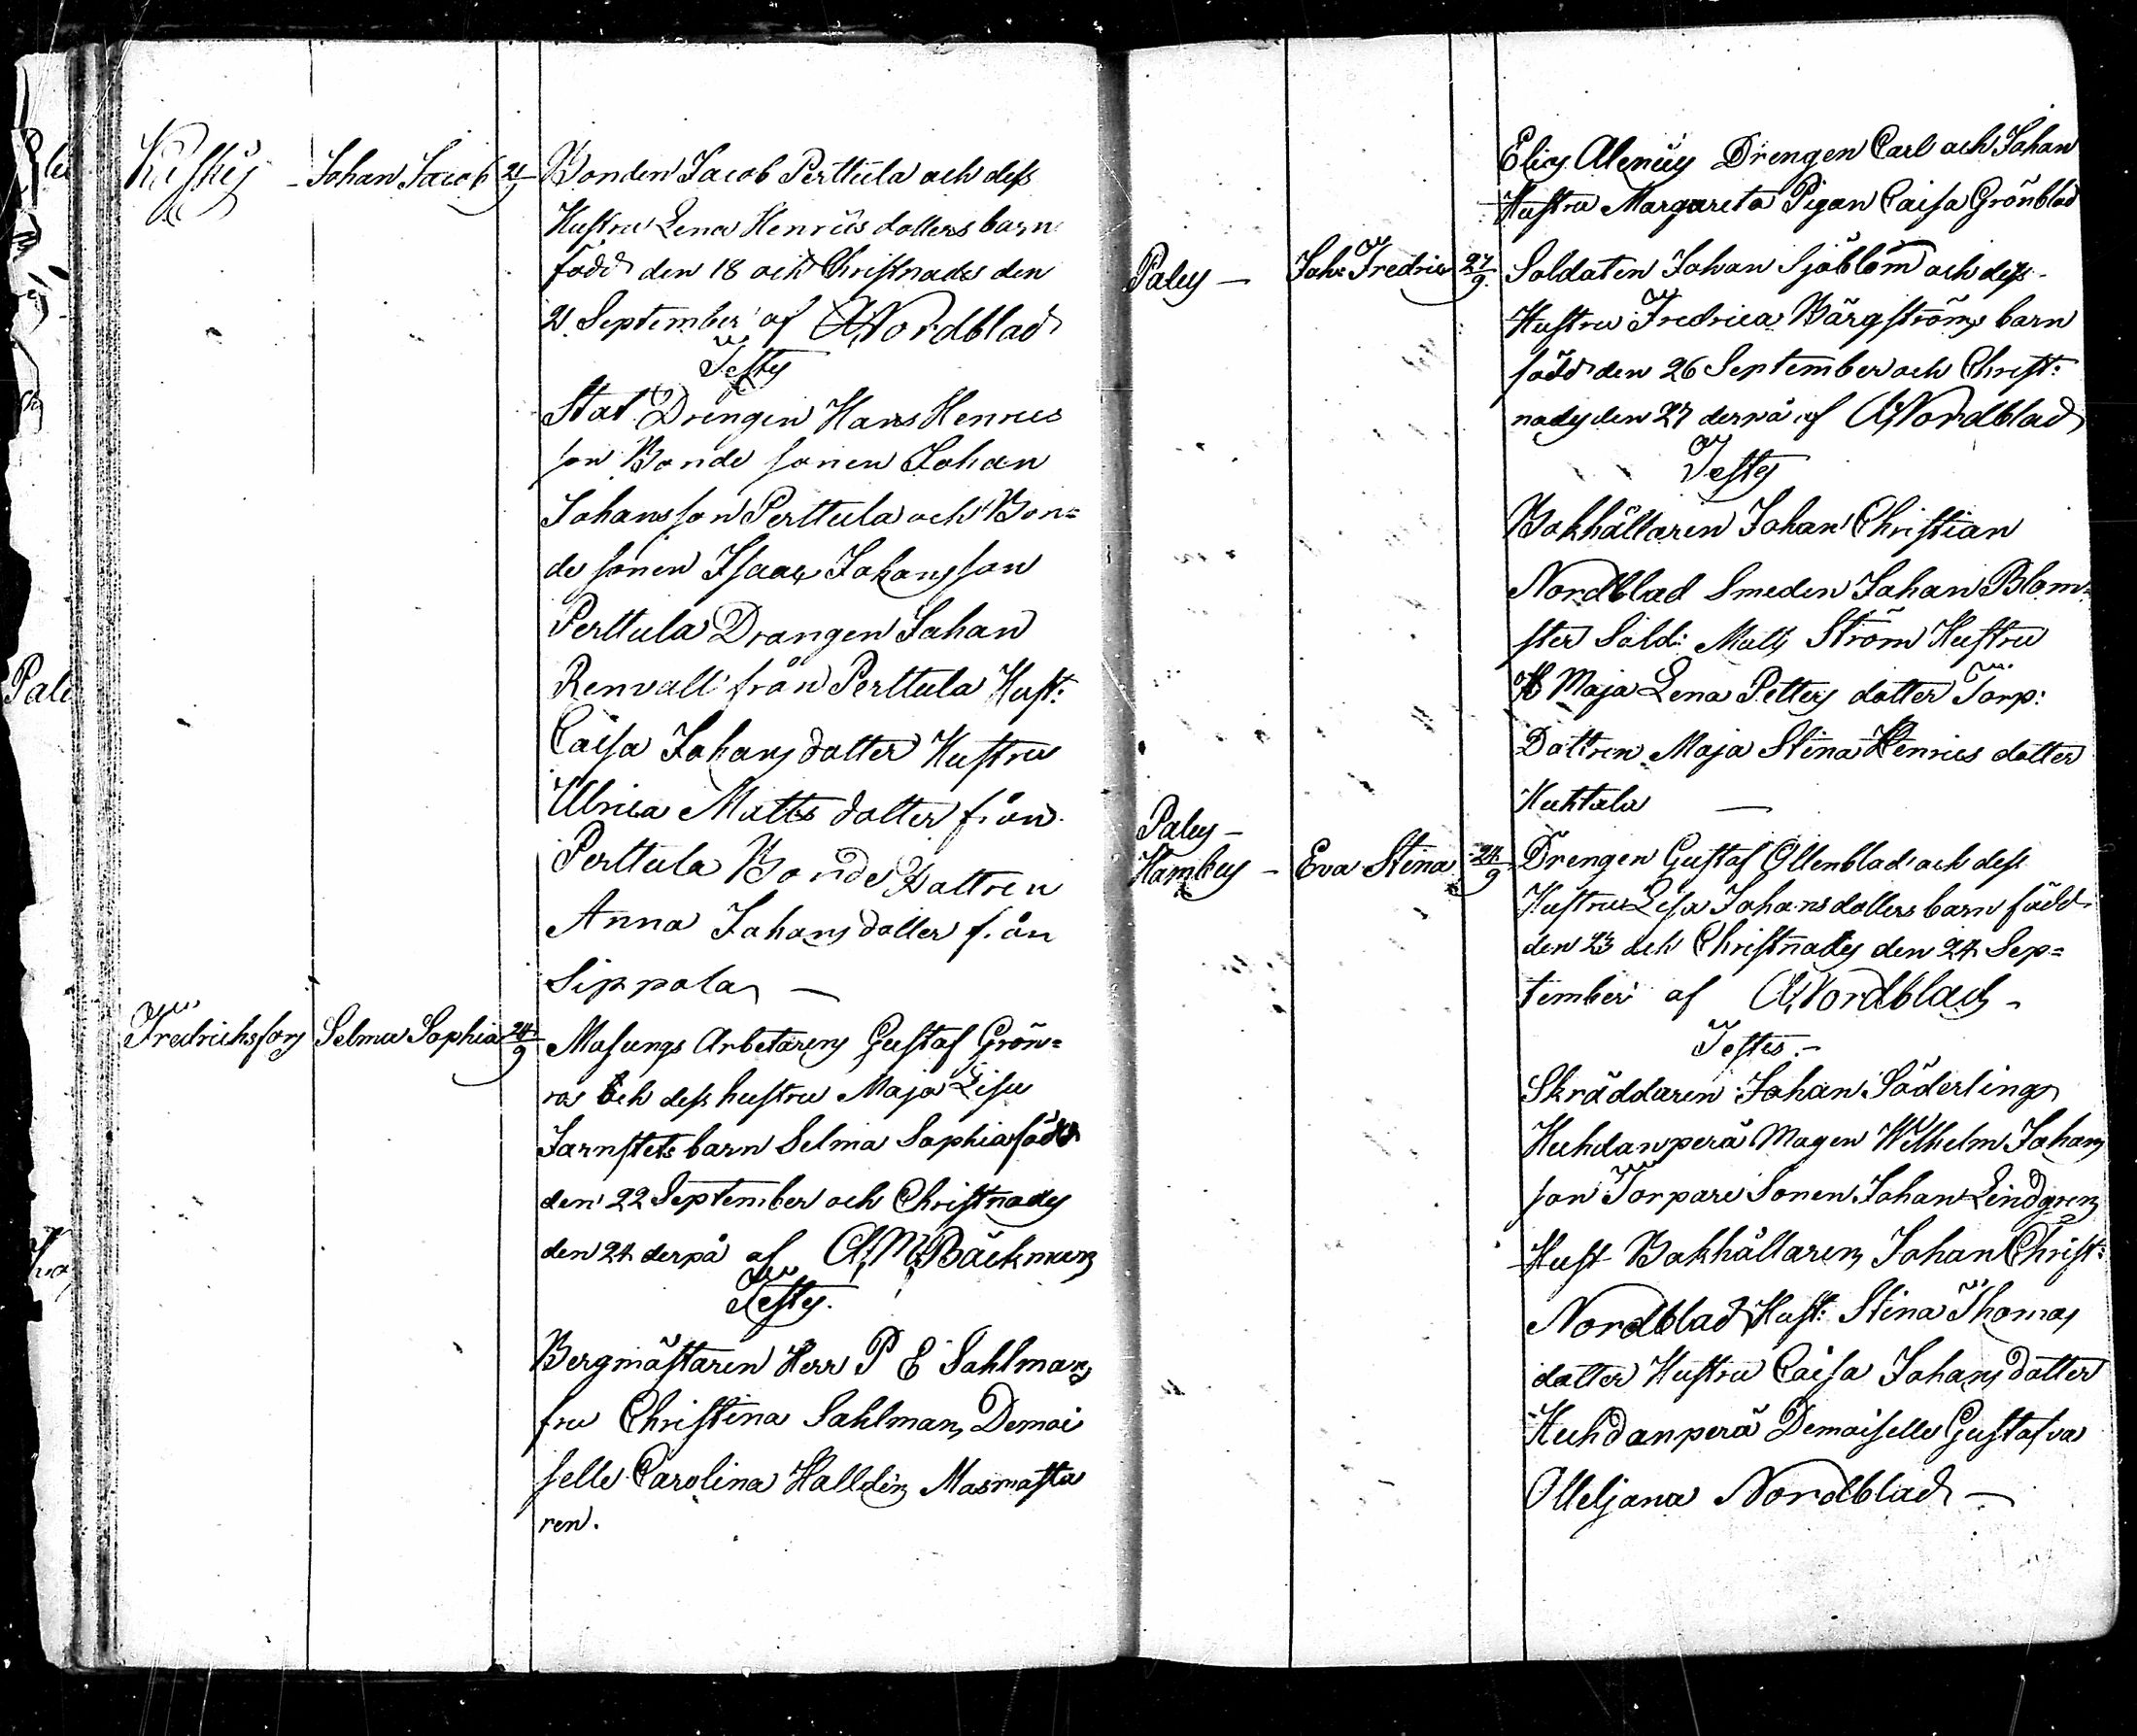 Johan Jacob 21/9 Bonden Jacob Perttula och dess
Hustru Lena Henrics dotters barn
född den 18 och Christnades den
21 September af A Nordblad
Testes
Stat Drengen Hans Henrics
son Bonde sonen Johan
Johansson Perttula och Bon=
de sonen Isaac Johansson
Perttula Drangen Johan
Renvall från Perttula Hust:
Caisa Johans dotter Hustru
Ulrica Matts dotter från
Perttula Bonde Dottren
Anna Johans dotter från
Sippola —
Fredrichsfors Selma Sophia 24/9 Masungs Arbetarens Gustaf Grön=
ros och dess hustru Maja Lisa
Jarnstets barn Selma Sophia född
den 22 September och Christnades
den 24 derpå af A, M, Bäckman
Testes.
Bergmästaren Herr P E Sahlman
fru Christina Sahlman, Demoi
selle Carolina Halldin Masmästa
ren.
Elias Alenius Drengen Carl och Johan
Hustru Margareta Pigan Caisa Grönblad
Palus — Joh: Fredric 27/9. Soldaten Johan Sjöblom och dess
Hustru Fredrica Bärgströms barn
född den 26 September och Christ:
nades den 27 derpå af A Nordblad
Testes
Bokhållaren Johan Christian
Nordblad Smeden Johan Blom=
ster Sold: Matts Ström Hustru
Maja Lena Petters dotter Torp:
Dottren Maja Stina Henrics dotter
Huhtala —
Palus —
Hambus — Eva Stina 24/9 Drengen Gustaf Ollenblad och dess
Hustru Lisa Johans dotters barn född
den 23 och Christnades den 24 Sep=
tember af A Nordblad
Testes. —
Skräddaren Johan Söderling
Huhdanperä Magen Wilhelm Johans
son Torpare Sonen Johan Lindgren
Hust Bokhållaren Johan Christ:
Nordblad Hust: Stina Thomas
dotter Hustru Caisa Johans dotter
Huhdanperä Demoiselle Gustafva
Olleljana Nordblad —